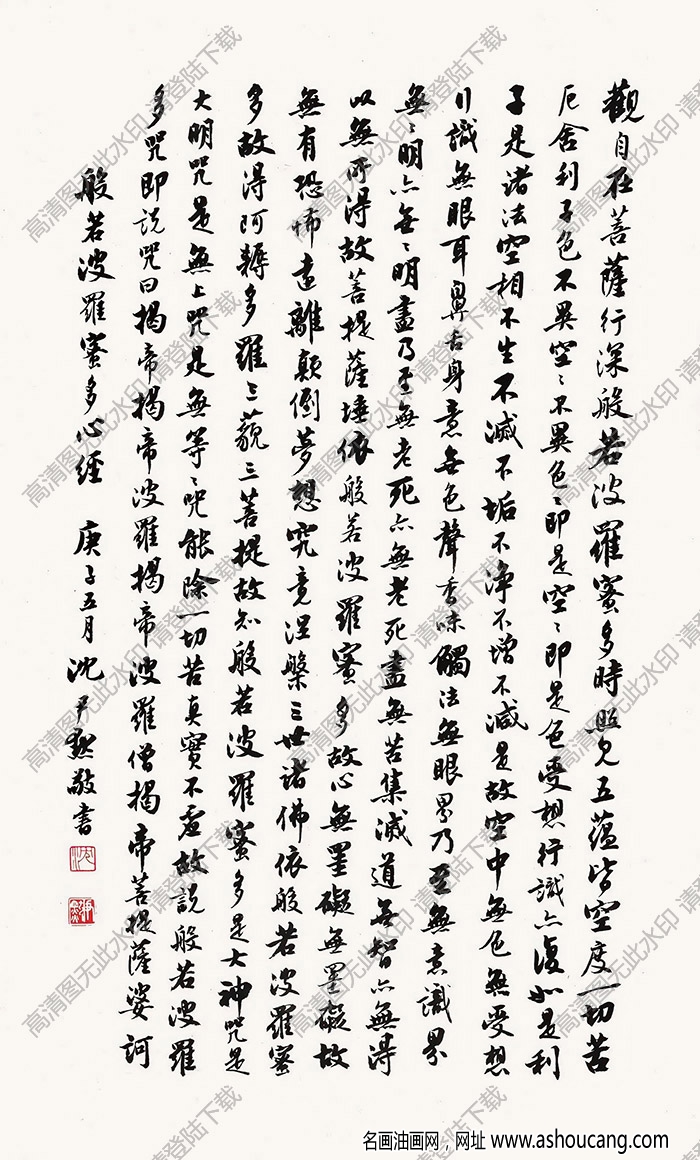 觀自在菩薩行深般若波羅蜜多時照見五蘊皆空度一切苦
厄舍利子色不異空〻不異色〻即是空〻即是色受想行識亦復如是利
子是諸法空相不生不滅不垢不淨不增不減是故空中無色無受想
行識無眼耳鼻舌身意無色聲香味觸法無眼界乃至無意識界
無〻明亦無〻明盡乃至無老死亦無老死盡無苦集滅道無智亦無得
以無所得故菩提薩埵依般若波羅蜜多故心無罣礙無罣礙故
無有恐怖遠離顛倒夢想究竟涅槃三世諸佛依般若波羅蜜
多故得阿耨多羅三藐三菩提故知般若波羅蜜多是大神咒是
大明咒是無上咒是無等〻咒能除一切苦真實不虛故說般若波羅
多咒即說咒曰揭帝揭帝波羅揭帝波羅僧揭帝菩提薩婆訶
般若波羅蜜多心經 庚子五月 沈尹默敬書
高清图无此水印 请登陆下载
名画油画网，网址 www.ashoucang.com